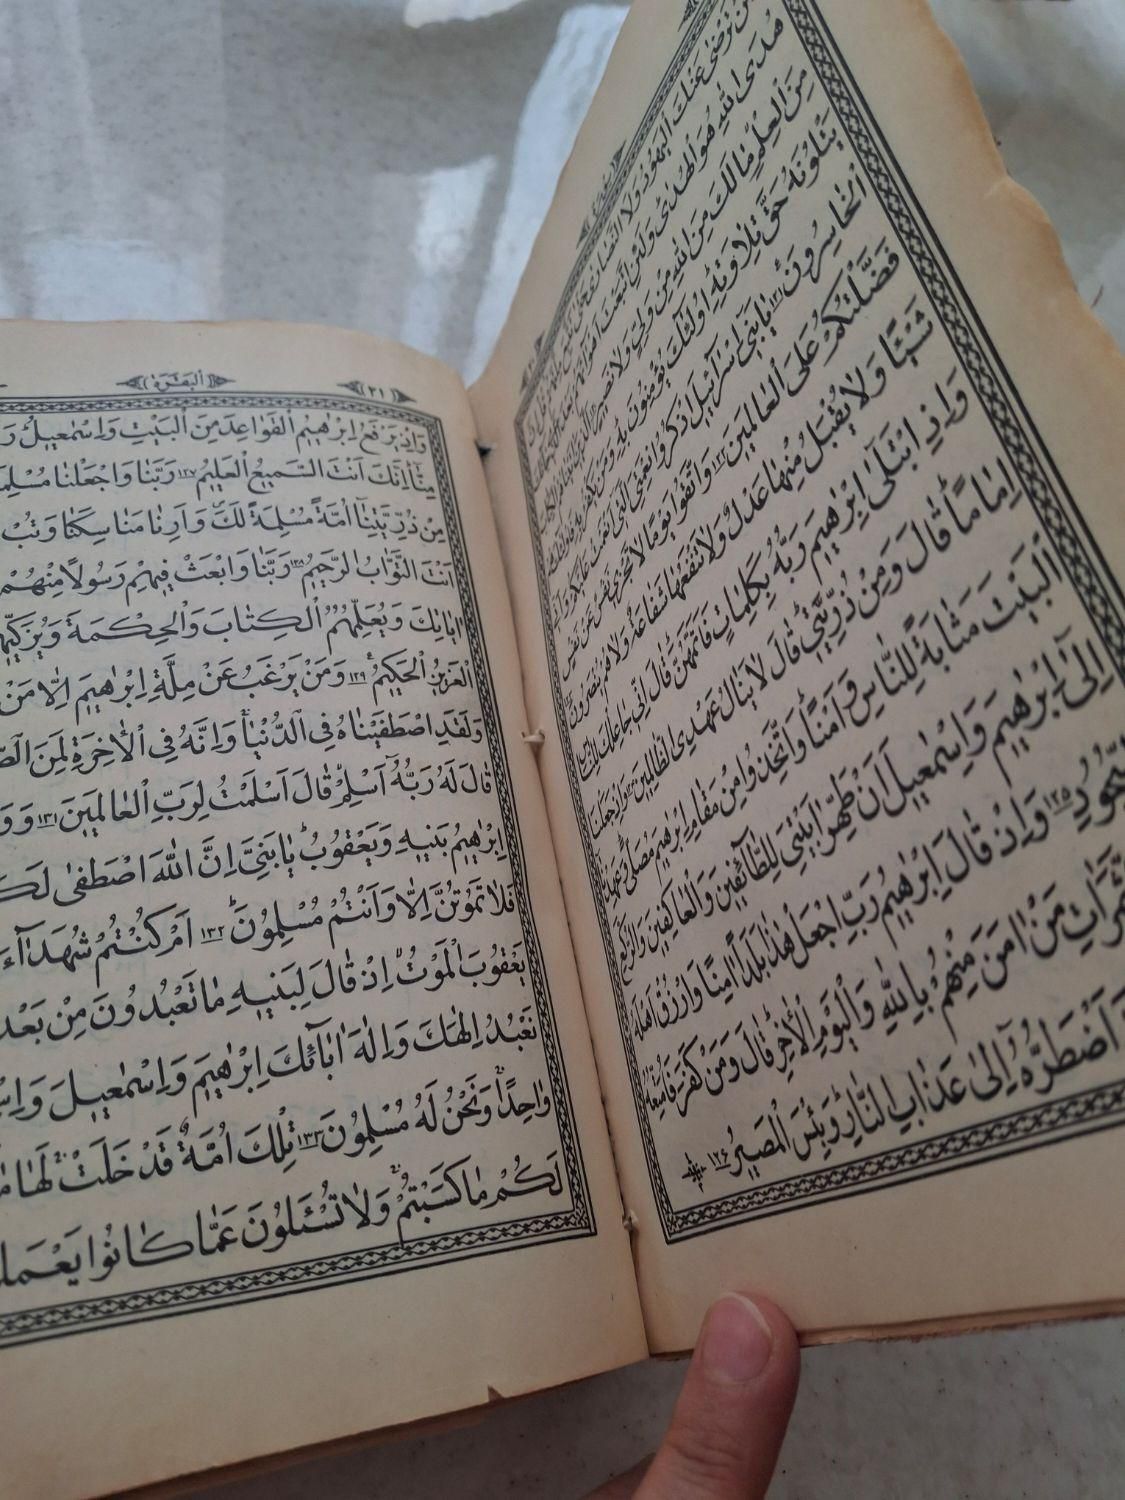 هُدَى اللّٰهِ هُوَ الْهُدٰى وَلَئِنِ اتَّبَعْتَ
مِنَ الْعِلْمِ مَا لَكَ مِنَ اللّٰهِ مِنْ وَلِيٍّ وَلَا نَصِيرٍ
يَتْلُونَهُ حَقَّ تِلَاوَتِهِ اُولٰئِكَ يُؤْمِنُونَ بِهِ وَمَنْ
الْخَاسِرُونَ ١٢١ يَا بَنِي اِسْرَائِيلَ اذْكُرُوا نِعْمَتِيَ الَّتِي اَنْعَمْتُ عَلَيْكُمْ
فَضَّلْتُكُمْ عَلَى الْعَالَمِينَ ١٢٢ وَاتَّقُوا يَوْمًا لَا تَجْزِي نَفْسٌ عَنْ نَفْسٍ
شَيْئًا وَلَا يُقْبَلُ مِنْهَا عَدْلٌ وَلَا تَنْفَعُهَا شَفَاعَةٌ وَلَا هُمْ يُنْصَرُونَ
وَاِذِ ابْتَلٰى اِبْرٰهِيمَ رَبُّهُ بِكَلِمَاتٍ فَاَتَمَّهُنَّ قَالَ اِنِّي جَاعِلُكَ لِلنَّاسِ
اِمَامًا قَالَ وَمِنْ ذُرِّيَّتِي قَالَ لَا يَنَالُ عَهْدِي الظَّالِمِينَ ١٢٤ وَاِذْ جَعَلْنَا
الْبَيْتَ مَثَابَةً لِلنَّاسِ وَاَمْنًا وَاتَّخِذُوا مِنْ مَقَامِ اِبْرٰهِيمَ مُصَلًّى وَعَهِدْنَا
اِلٰى اِبْرٰهِيمَ وَاِسْمٰعِيلَ اَنْ طَهِّرَا بَيْتِيَ لِلطَّائِفِينَ وَالْعَاكِفِينَ وَالرُّكَّعِ
السُّجُودِ ١٢٥ وَاِذْ قَالَ اِبْرٰهِيمُ رَبِّ اجْعَلْ هٰذَا بَلَدًا اٰمِنًا وَارْزُقْ اَهْلَهُ
الثَّمَرَاتِ مَنْ اٰمَنَ مِنْهُمْ بِاللّٰهِ وَالْيَوْمِ الْاٰخِرِ قَالَ وَمَنْ كَفَرَ فَاُمَتِّعُهُ
اَضْطَرُّهُ اِلٰى عَذَابِ النَّارِ وَبِئْسَ الْمَصِيرُ ١٢٦
(٢١) (اَلْبَقَرَةُ)
وَاِذْ يَرْفَعُ اِبْرٰهِيمُ الْقَوَاعِدَ مِنَ الْبَيْتِ وَاِسْمٰعِيلُ
مِنَّا اِنَّكَ اَنْتَ السَّمِيعُ الْعَلِيمُ ١٢٧ رَبَّنَا وَاجْعَلْنَا
مِنْ ذُرِّيَّتِنَا اُمَّةً مُسْلِمَةً لَكَ وَاَرِنَا مَنَاسِكَنَا وَتُبْ
اَنْتَ التَّوَّابُ الرَّحِيمُ ١٢٨ رَبَّنَا وَابْعَثْ فِيهِمْ رَسُولًا مِنْهُمْ
اٰيَاتِكَ وَيُعَلِّمُهُمُ الْكِتَابَ وَالْحِكْمَةَ وَيُزَكِّيهِمْ
الْعَزِيزُ الْحَكِيمُ ١٢٩ وَمَنْ يَرْغَبُ عَنْ مِلَّةِ اِبْرٰهِيمَ اِلَّا مَنْ
وَلَقَدِ اصْطَفَيْنَاهُ فِي الدُّنْيَا وَاِنَّهُ فِي الْاٰخِرَةِ لَمِنَ
قَالَ لَهُ رَبُّهُ اَسْلِمْ قَالَ اَسْلَمْتُ لِرَبِّ الْعَالَمِينَ ١٣١
اِبْرٰهِيمُ بَنِيهِ وَيَعْقُوبُ يَا بَنِيَّ اِنَّ اللّٰهَ اصْطَفٰى
فَلَا تَمُوتُنَّ اِلَّا وَاَنْتُمْ مُسْلِمُونَ ١٣٢ اَمْ كُنْتُمْ شُهَدَاءَ
يَعْقُوبَ الْمَوْتُ اِذْ قَالَ لِبَنِيهِ مَا تَعْبُدُونَ مِنْ
نَعْبُدُ اِلٰهَكَ وَاِلٰهَ اٰبَائِكَ اِبْرٰهِيمَ وَاِسْمٰعِيلَ
وَاحِدًا وَنَحْنُ لَهُ مُسْلِمُونَ ١٣٣ تِلْكَ اُمَّةٌ قَدْ خَلَتْ لَهَا مَا
لَكُمْ مَا كَسَبْتُمْ وَلَا تُسْئَلُونَ عَمَّا كَانُوا